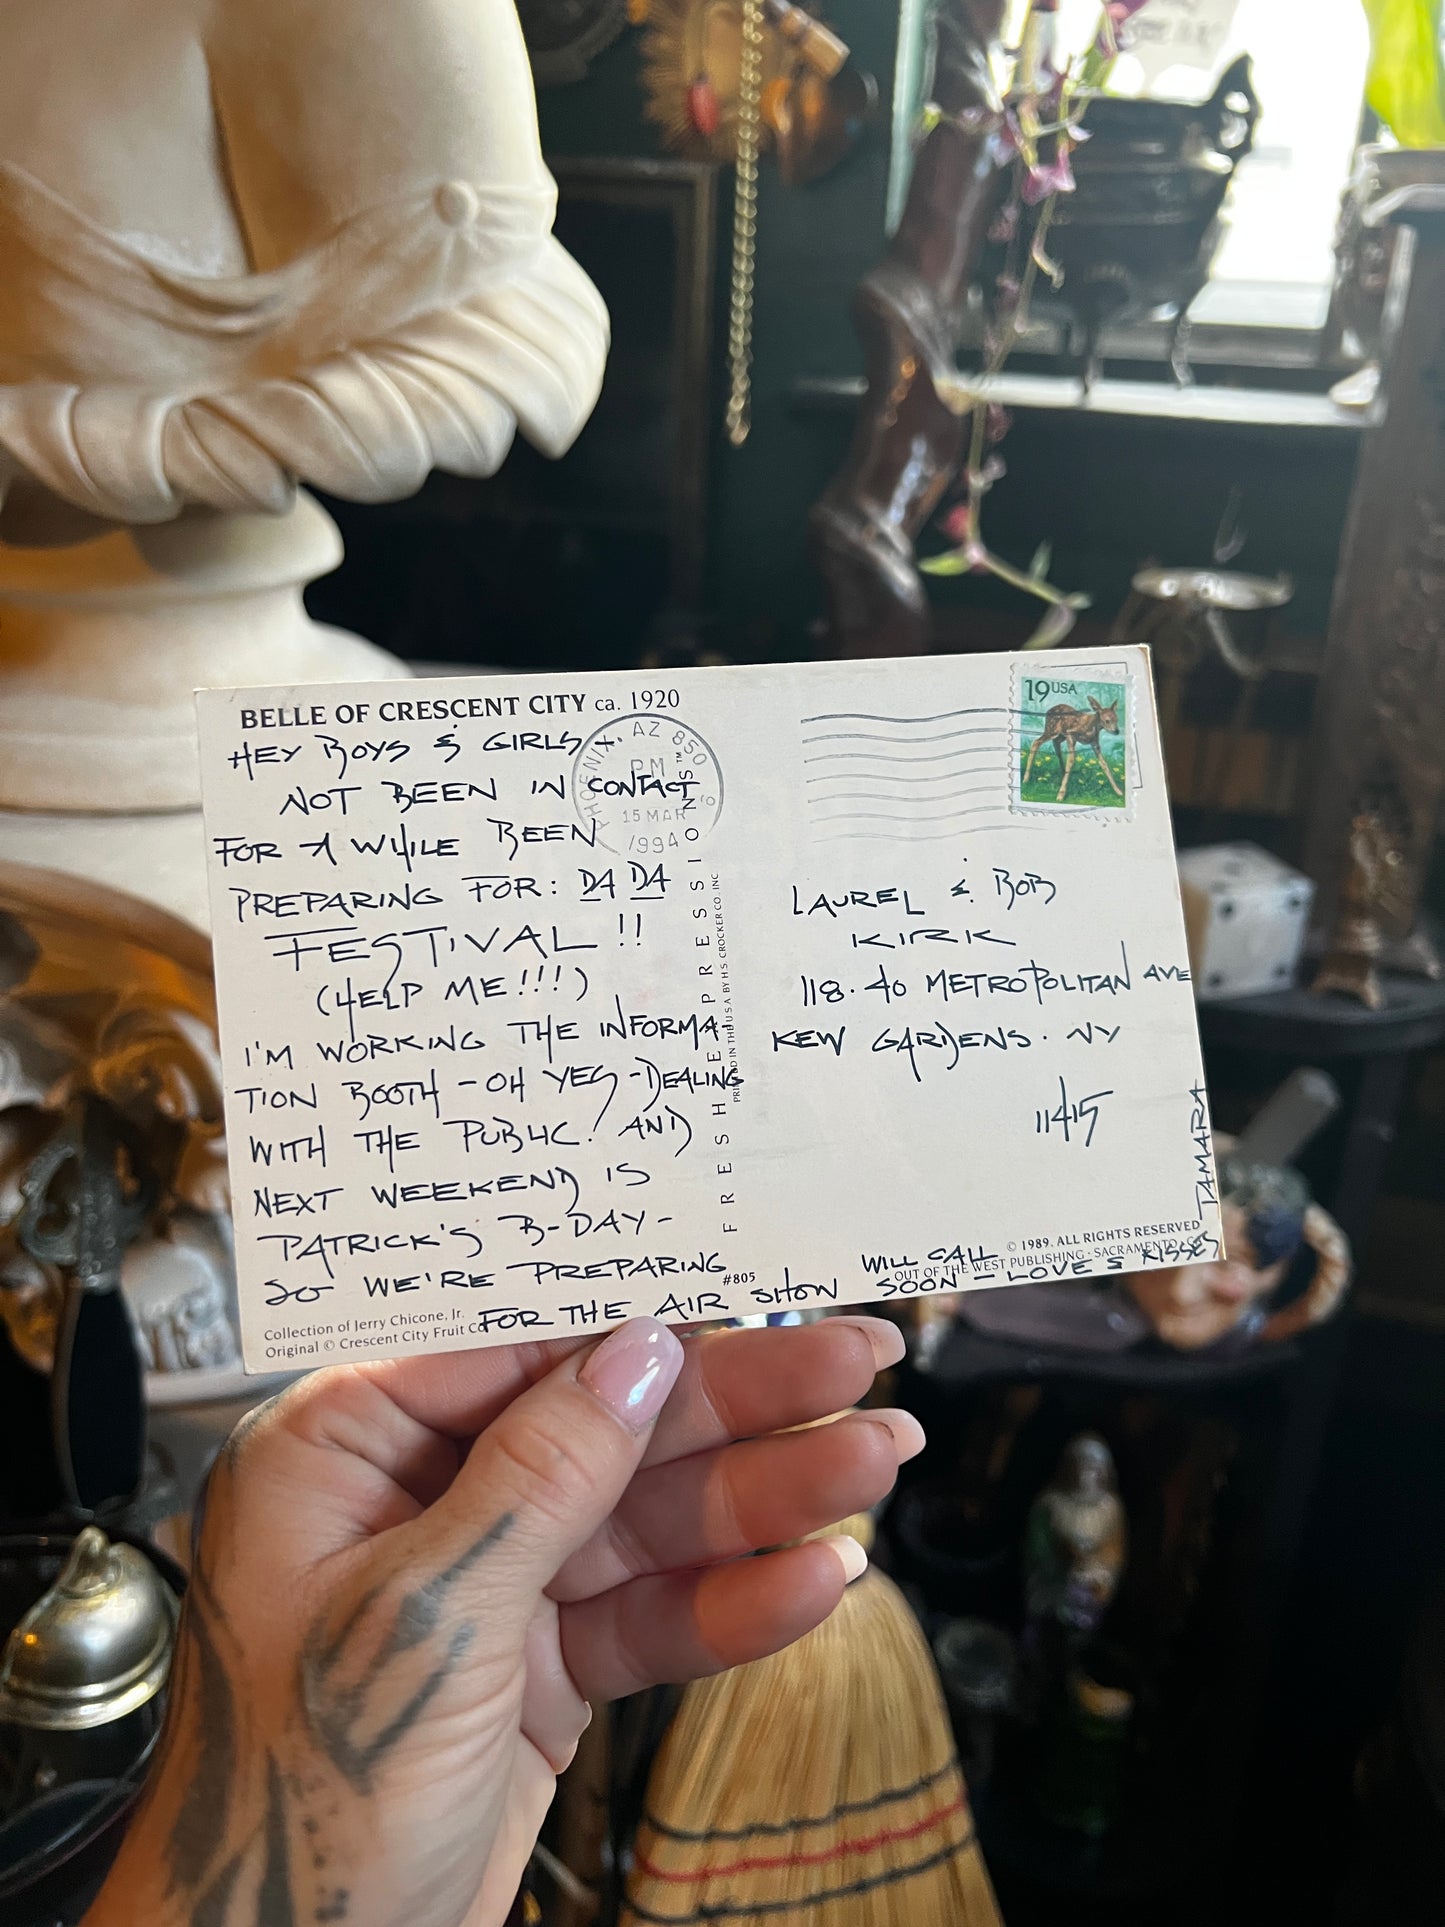 BELLE OF CRESCENT CITY ca. 1920
HEY BOYS & GIRLS,
NOT BEEN IN CONTACT
FOR A WHILE BEEN
PREPARING FOR: DA DA
FESTIVAL!!
(HELP ME!!!)
I'M WORKING THE INFORMA-
TION BOOTH - OH YES - DEALING
WITH THE PUBLIC! AND
NEXT WEEKEND IS
PATRICK'S B-DAY -
SO WE'RE PREPARING
FOR THE AIR SHOW
WILL CALL
SOON - LOVE & KISSES
TAMARA
Collection of Jerry Chicone, Jr.
Original © Crescent City Fruit Co.
#805
FRESH EXPRESSIONS™
PRINTED IN THE U S A BY H.S. CROCKER CO. INC
PHOENIX, AZ 850
PM
15 MAR
1994
19 USA
LAUREL & BOB
KIRK
118.40 METROPOLITAN AVE
KEW GARDENS. NY
11415
© 1989. ALL RIGHTS RESERVED
OUT OF THE WEST PUBLISHING · SACRAMENTO,